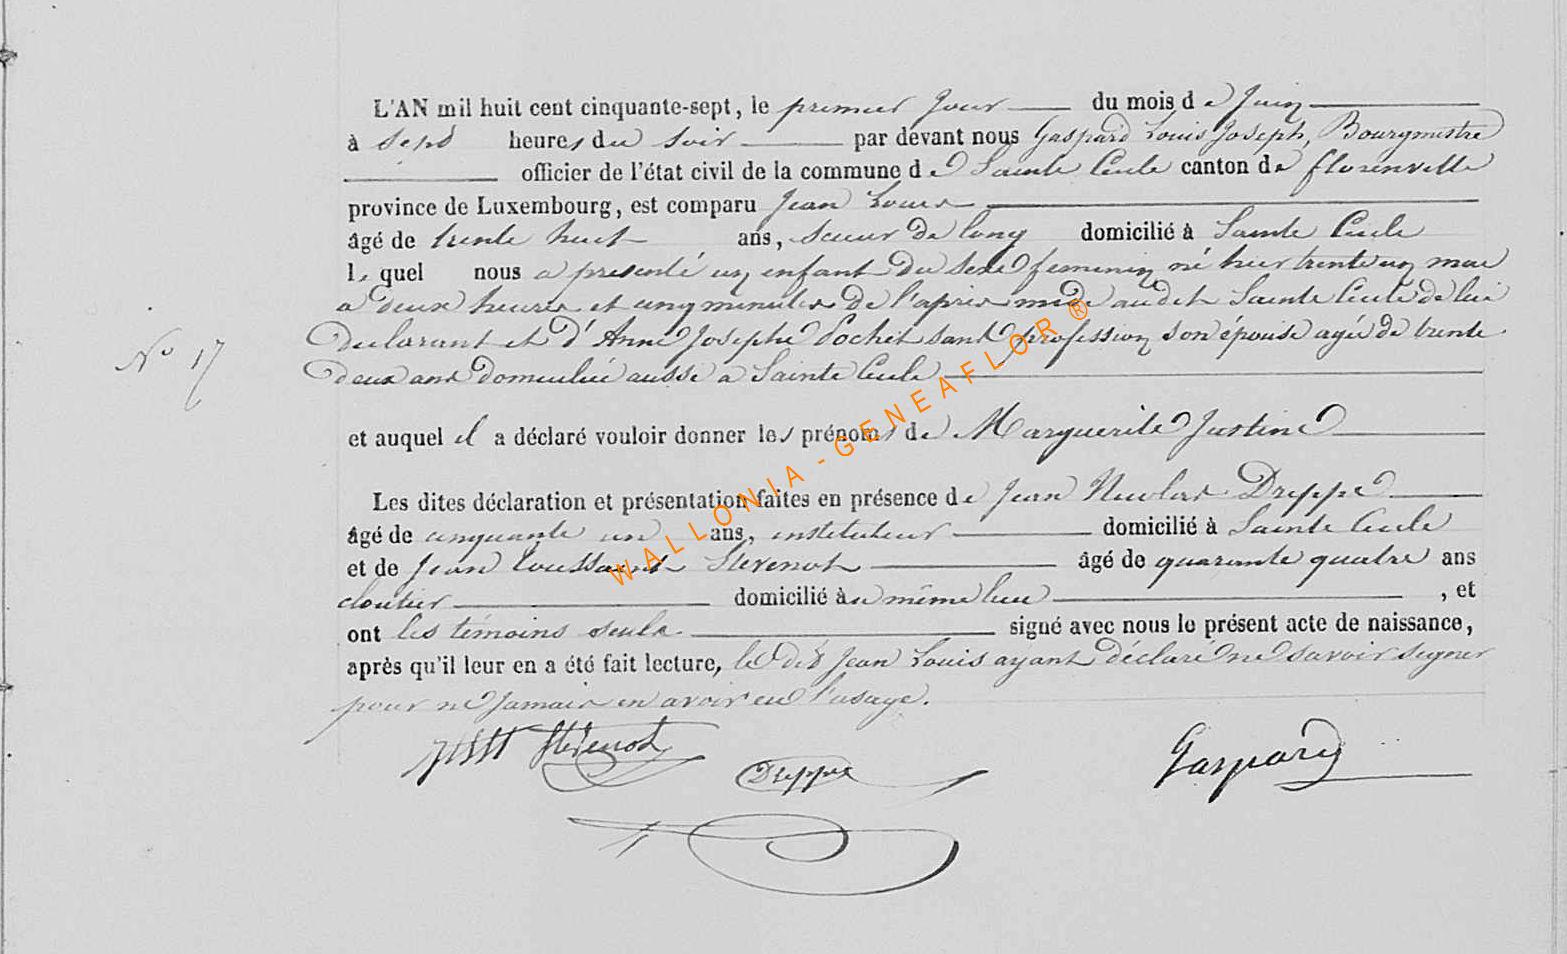 L'AN mil huit cent cinquante-sept, le premier jour du mois de Juin
à sept heures du soir par devant nous Gaspard Louis Joseph, Bourgmestre
officier de l'état civil de la commune de Sainte Cecile canton de florenville
province de Luxembourg, est comparu Jean Louis
âgé de trente huit ans, scieur de long domicilié à Sainte Cecile
le quel nous a presenté un enfant du sexe feminin né hier trente un mai
a deux heures et cinq minutes de l'apres midi audit Sainte Cecile de lui
declarant et d'Anne Josephe Pochet sans profession son épouse agée de trente
deux ans domiciliée aussi a Sainte Cecile
N° 17
et auquel il a déclaré vouloir donner les prénoms de Marguerite Justine
Les dites déclaration et présentation faites en présence de Jean Nicolas Dreppe
âgé de cinquante un ans, instituteur domicilié à Sainte Cecile
et de Jean Toussaint Stevenot âgé de quarante quatre ans
cloutier domicilié au même lieu , et
ont les témoins seuls signé avec nous le présent acte de naissance,
après qu'il leur en a été fait lecture, le dit Jean Louis ayant déclaré ne savoir signer
pour ne jamais en avoir eu l'usage.
Stevenot
Dreppe
Gaspard
WALLONIA - GENEAFLOR ®